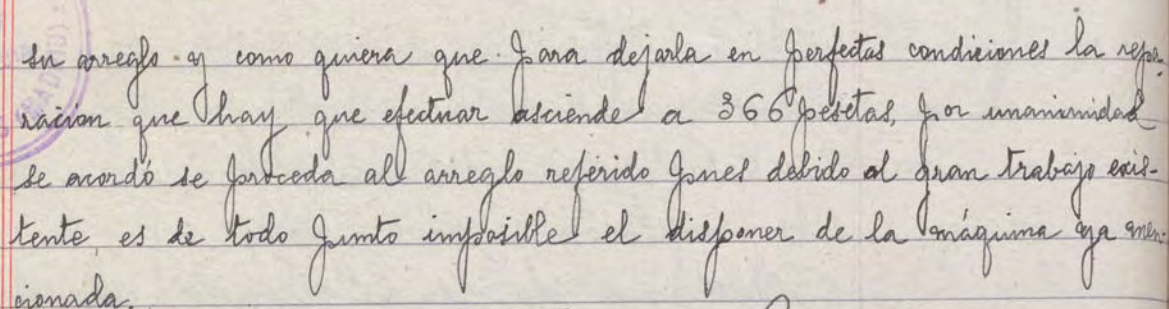 su arreglo y como quiera que para dejarla en perfectas condiciones la repa-
ración que hay que efectuar asciende a 366 pesetas, por unanimidad
se acordó se proceda al arreglo referido pues debido al gran trabajo exis-
tente es de todo punto imposible el disponer de la máquina ya men-
cionada.